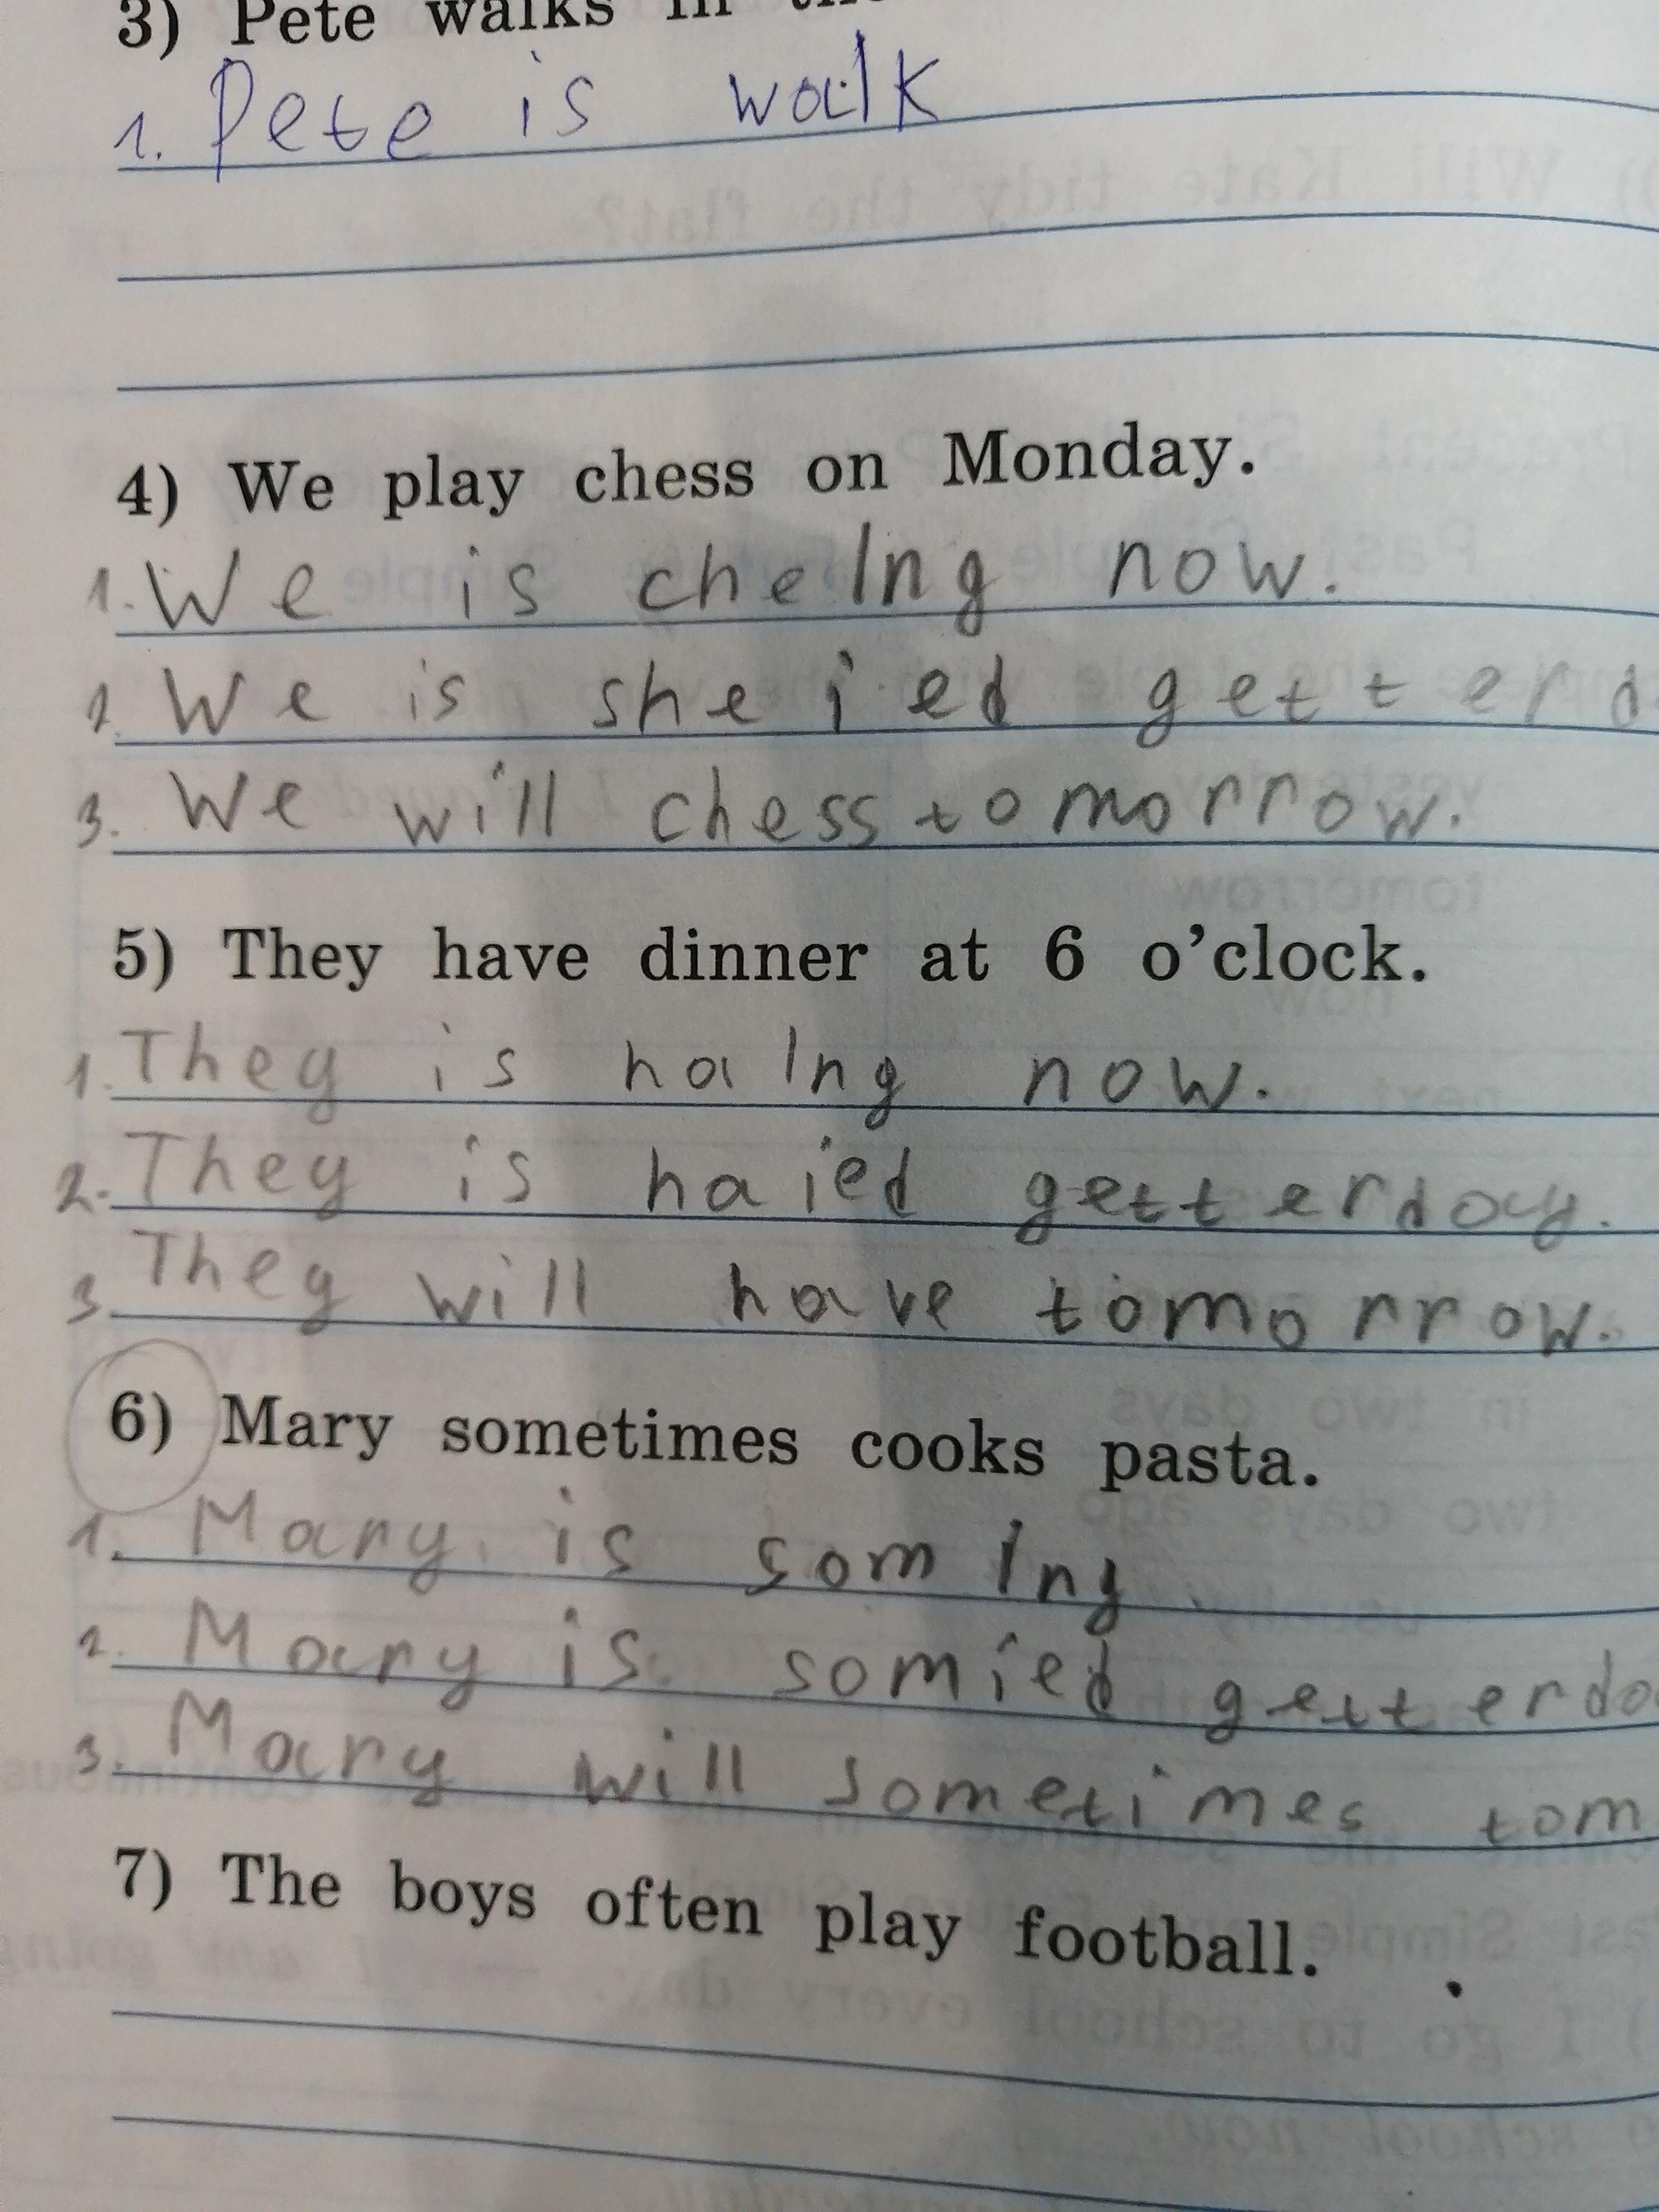 3) Pete walks in
1. Pete is walk
4) We play chess on Monday.
1. We is cheIng now.
2. We is sheied getterd
3. We will chess tomorrow.
5) They have dinner at 6 o'clock.
1. They is haIng now.
2. They is haied getterday.
3. They will have tomorrow.
6) Mary sometimes cooks pasta.
1. Mary is somIng
2. Mary is somied getterda
3. Mary will sometimes tom
7) The boys often play football.